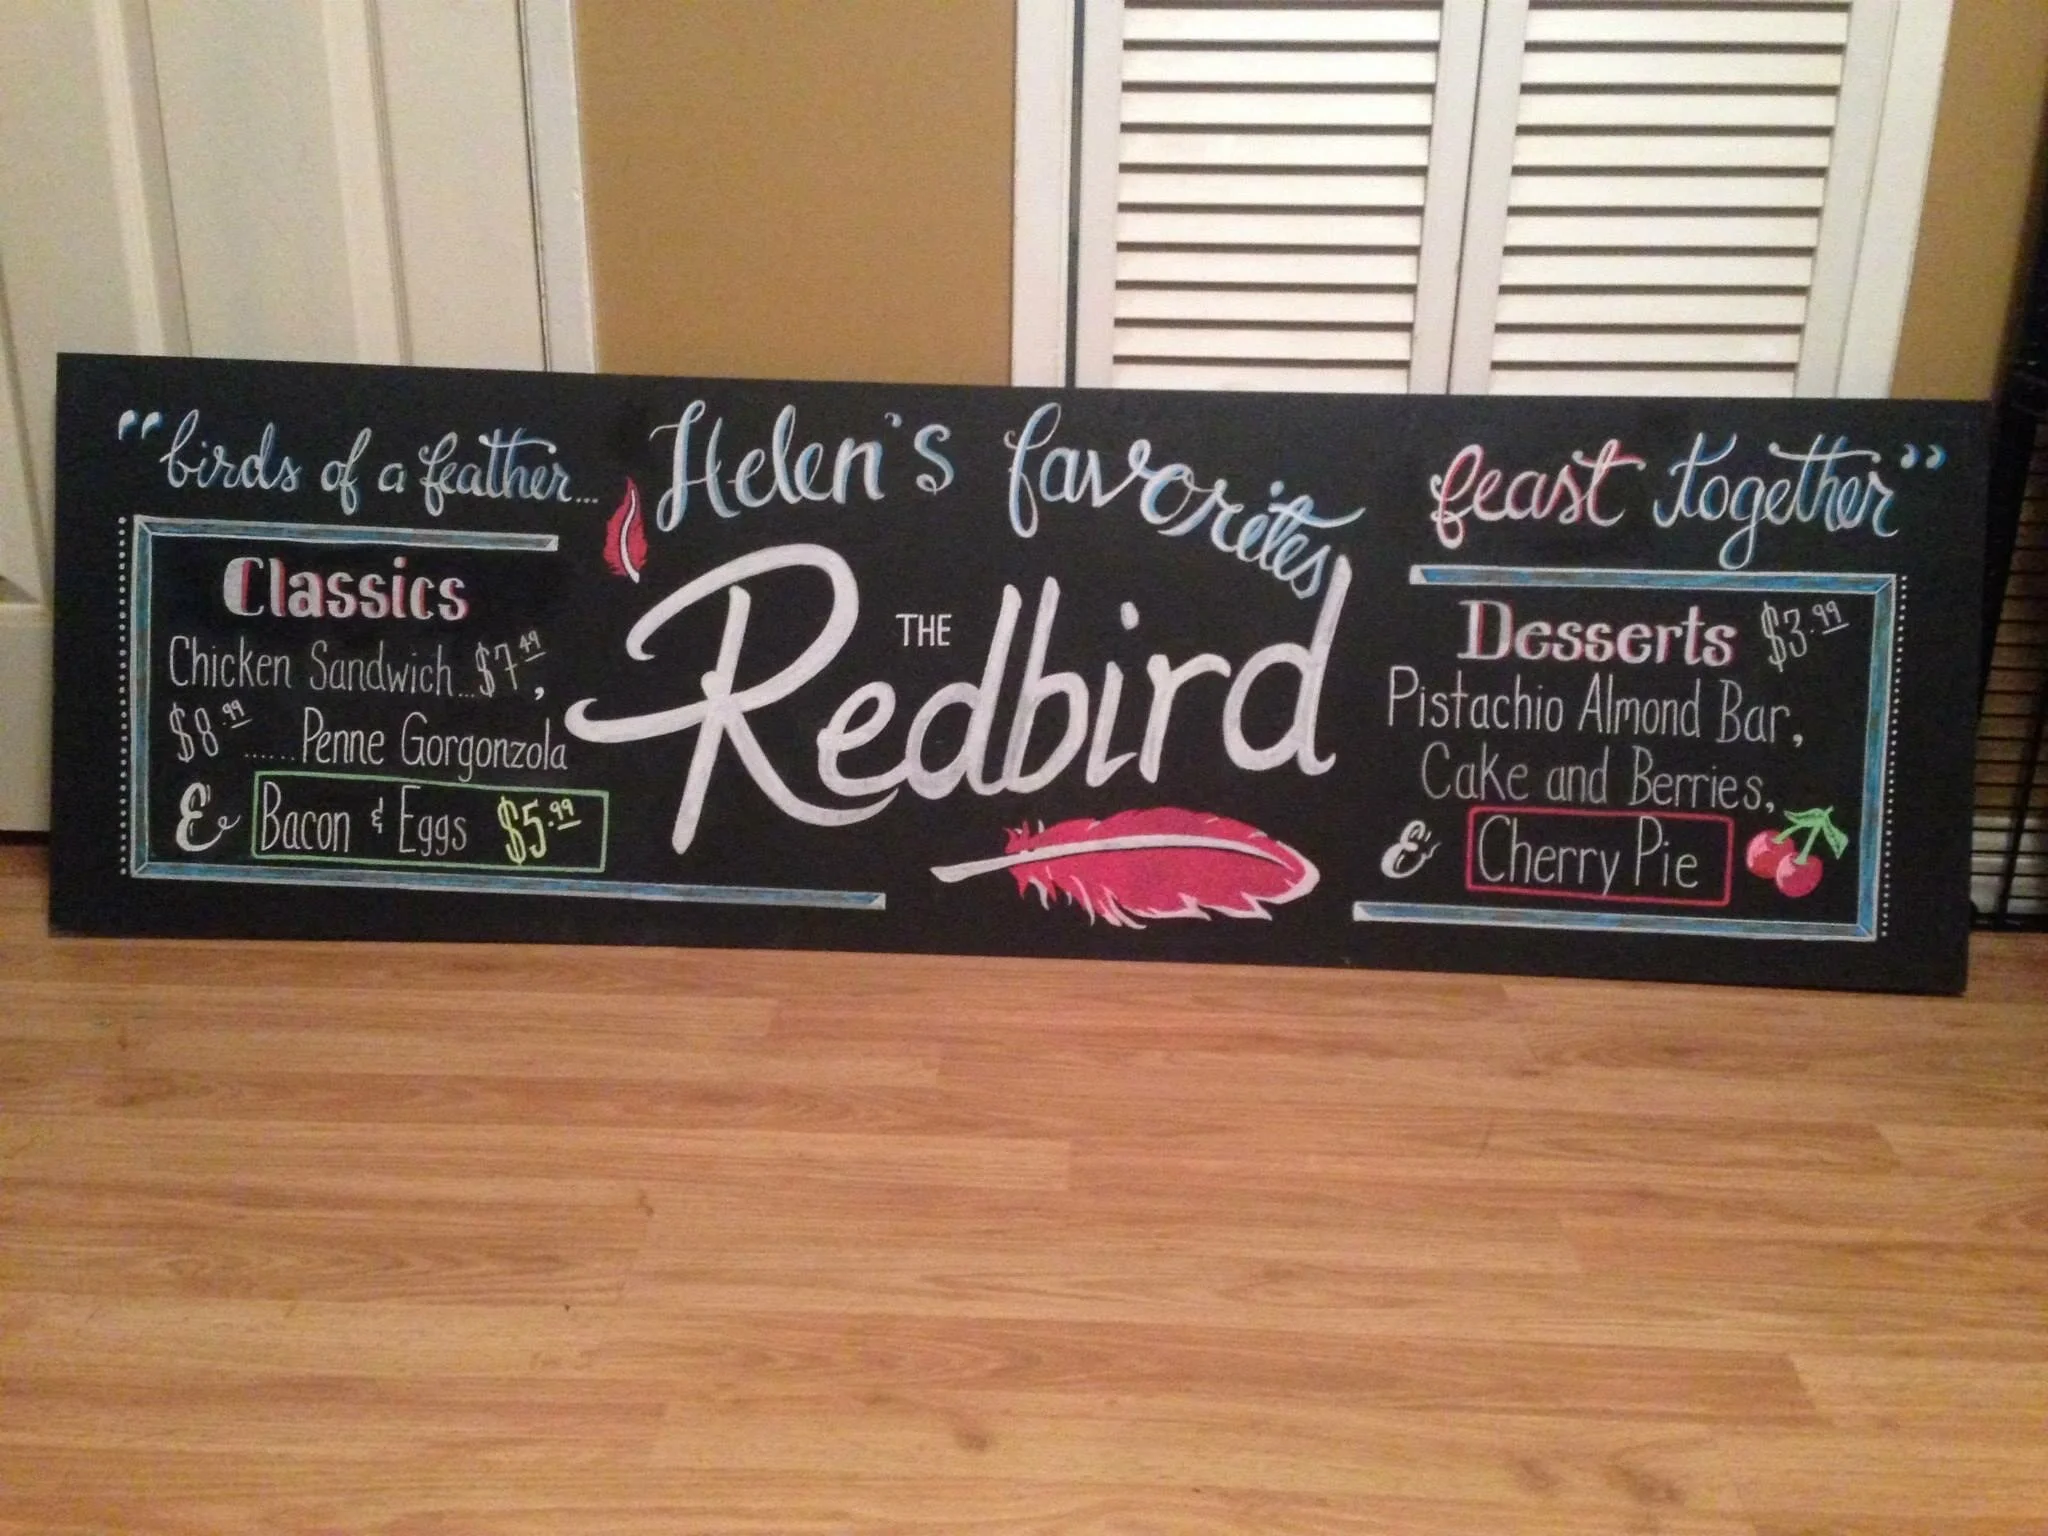 "birds of a feather...
Helen's favorites
feast together"
Classics
Chicken Sandwich...$7.49,
$8.99......Penne Gorgonzola
& Bacon & Eggs $5.99
THE
Redbird
Desserts $3.99
Pistachio Almond Bar,
Cake and Berries,
& Cherry Pie